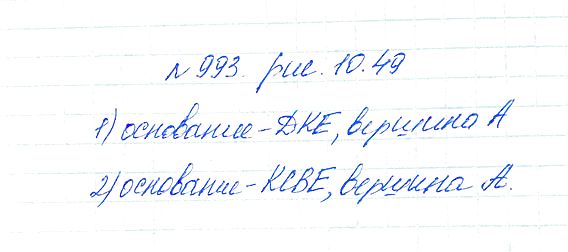 № 993. рис. 10.49
1) основание - ДКЕ, вершина А
2) основание - КСВЕ, вершина А.